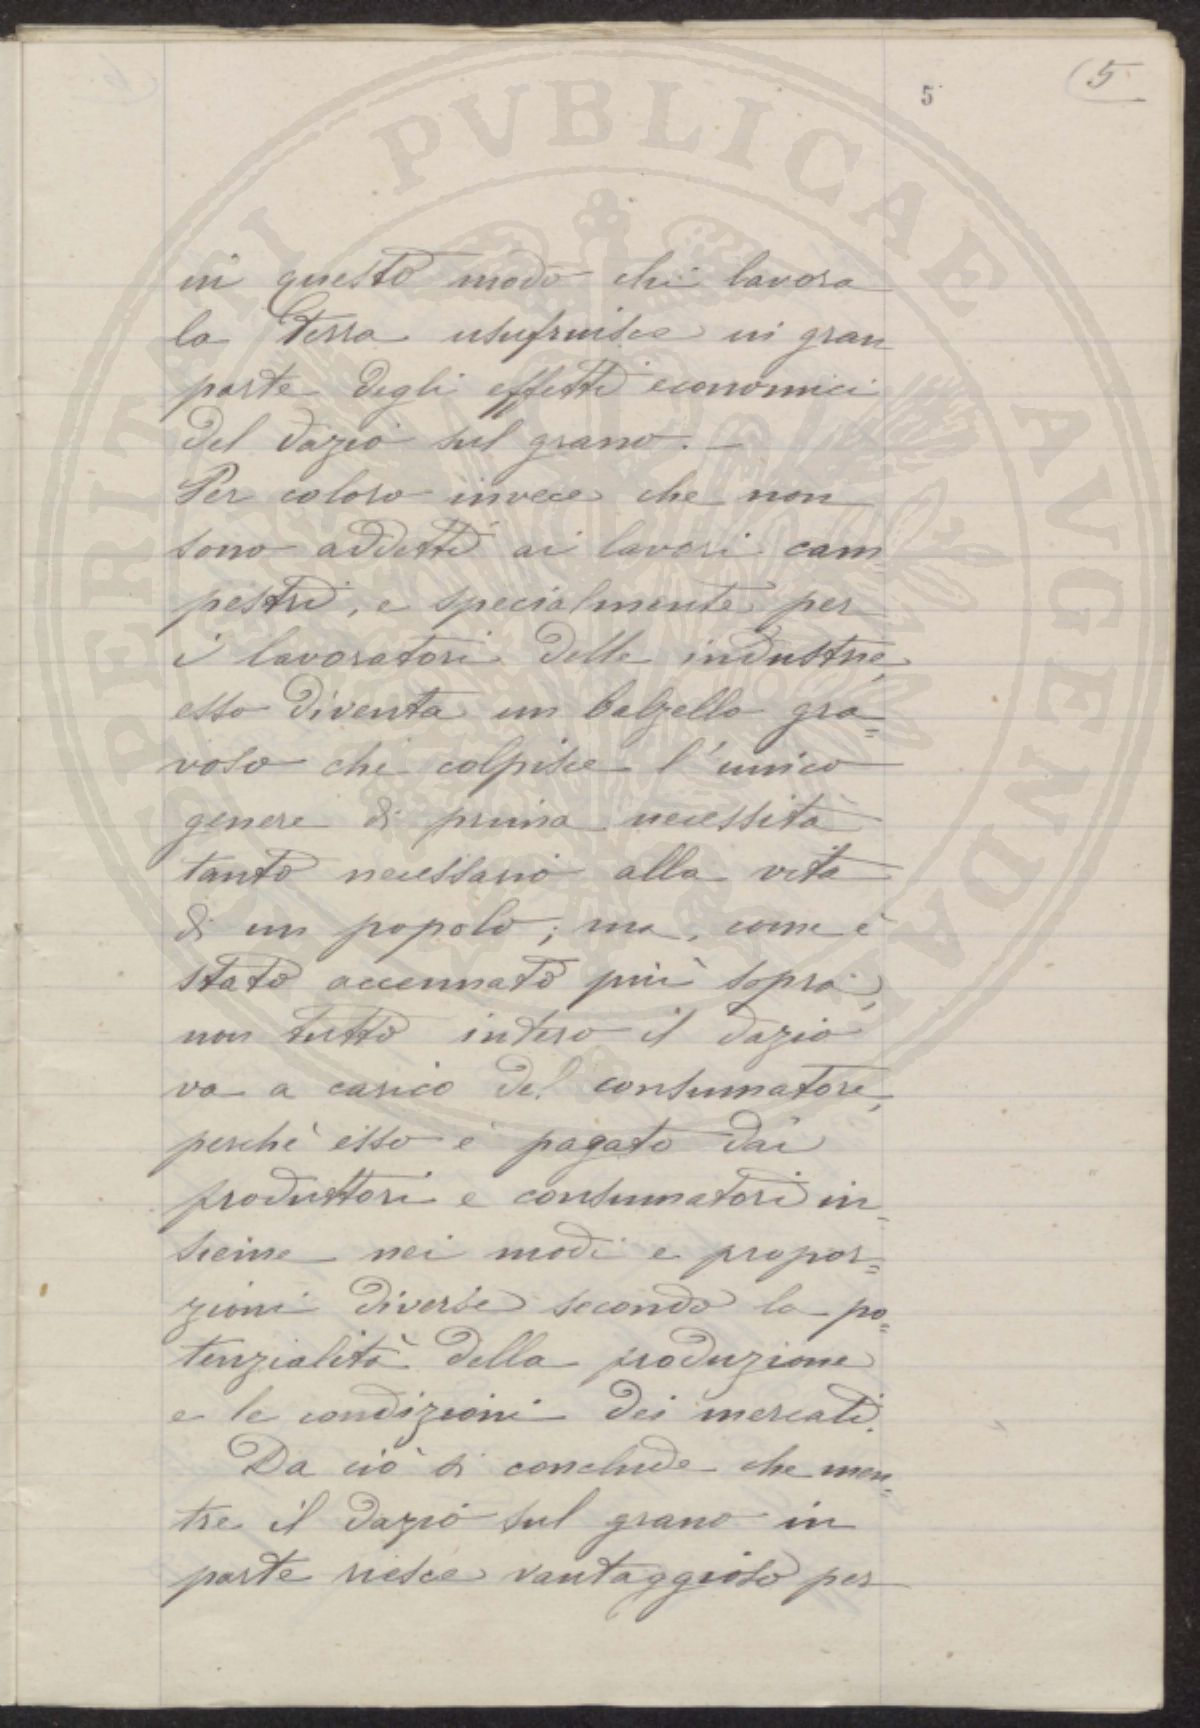 5
5
in questo modo chi lavora
la terra usufruisce in gran
parte degli effetti economici
del dazio sul grano. –
Per coloro invece che non
sono addetti ai lavori cam-
pestri, e specialmente per
i lavoratori delle industrie,
esso diventa un balzello gra=
voso che colpisce l'unico
genere di prima necessità
tanto necessario alla vita
di un popolo; ma, come è
stato accennato più sopra,
non tutto intero il dazio
va a carico del consumatore,
perchè esso è pagato dai
produttori e consumatori in=
sieme nei modi e propor=
zioni diverse secondo la po=
tenzialità della produzione
e le condizioni dei mercati.
Da ciò si conclude che men=
tre il dazio sul grano in
parte riesce vantaggioso per
PERITTI PVBLICAE AVGENDA